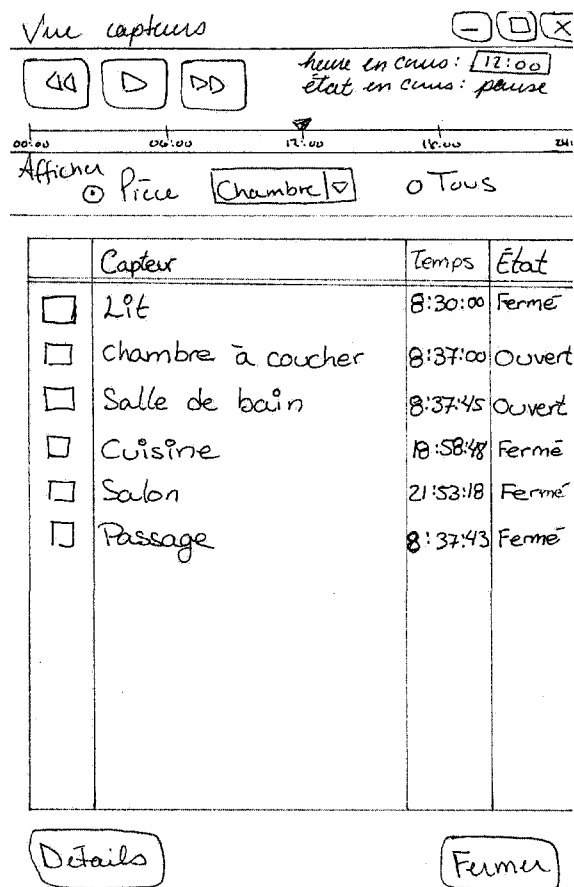 Vue capteurs
heure en cours: 12:00
état en cours: pause
00:00 06:00 12:00 18:00
Afficher
Pièce Chambre Tous
Capteur Temps État
Lit 8:30:00 Fermé
Chambre à coucher 8:37:00 Ouvert
Salle de bain 8:37:45 Ouvert
Cuisine 18:58:48 Fermé
Salon 21:53:18 Fermé
Passage 8:37:43 Fermé
Details Fermer